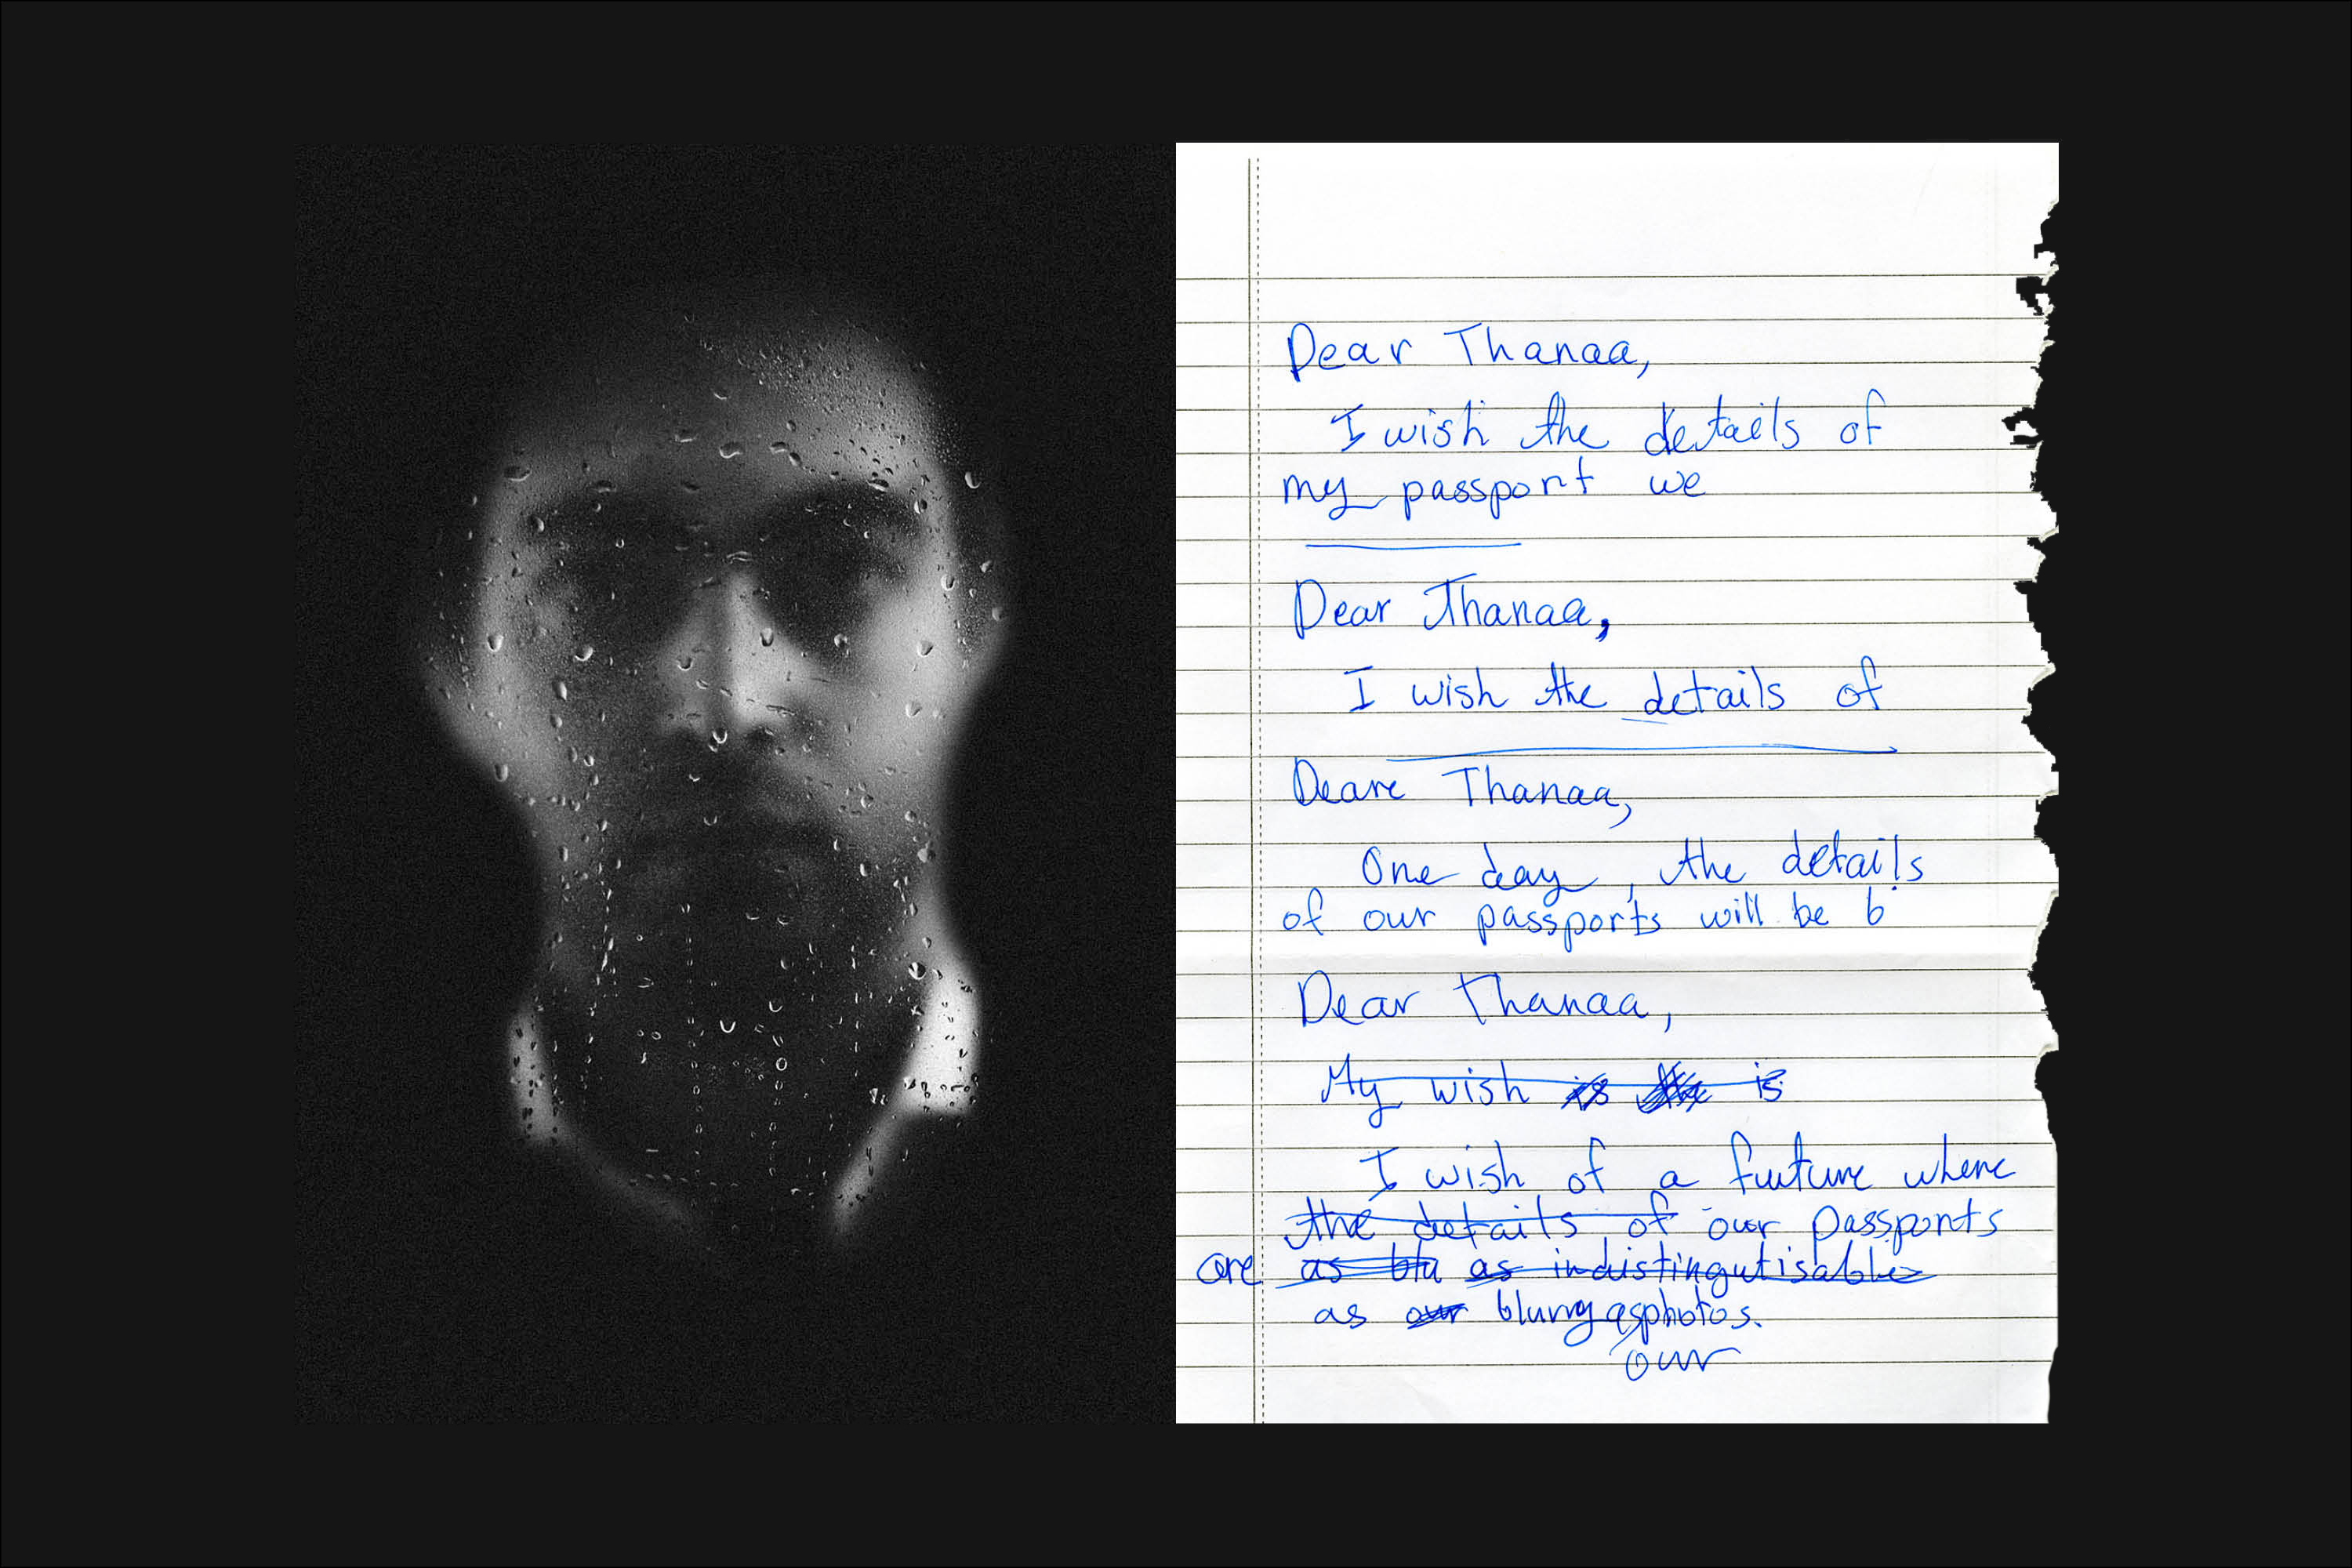 Dear Thanaa,
I wish the details of
my passport we
Dear Thanaa,
I wish the details of
Deare Thanaa,
One day, the details
of our passports will be b
Dear Thanaa,
My wish is the is
I wish of a future where
the details of our passports
are as blu as indistingutisable
as our blurry as photos.
our